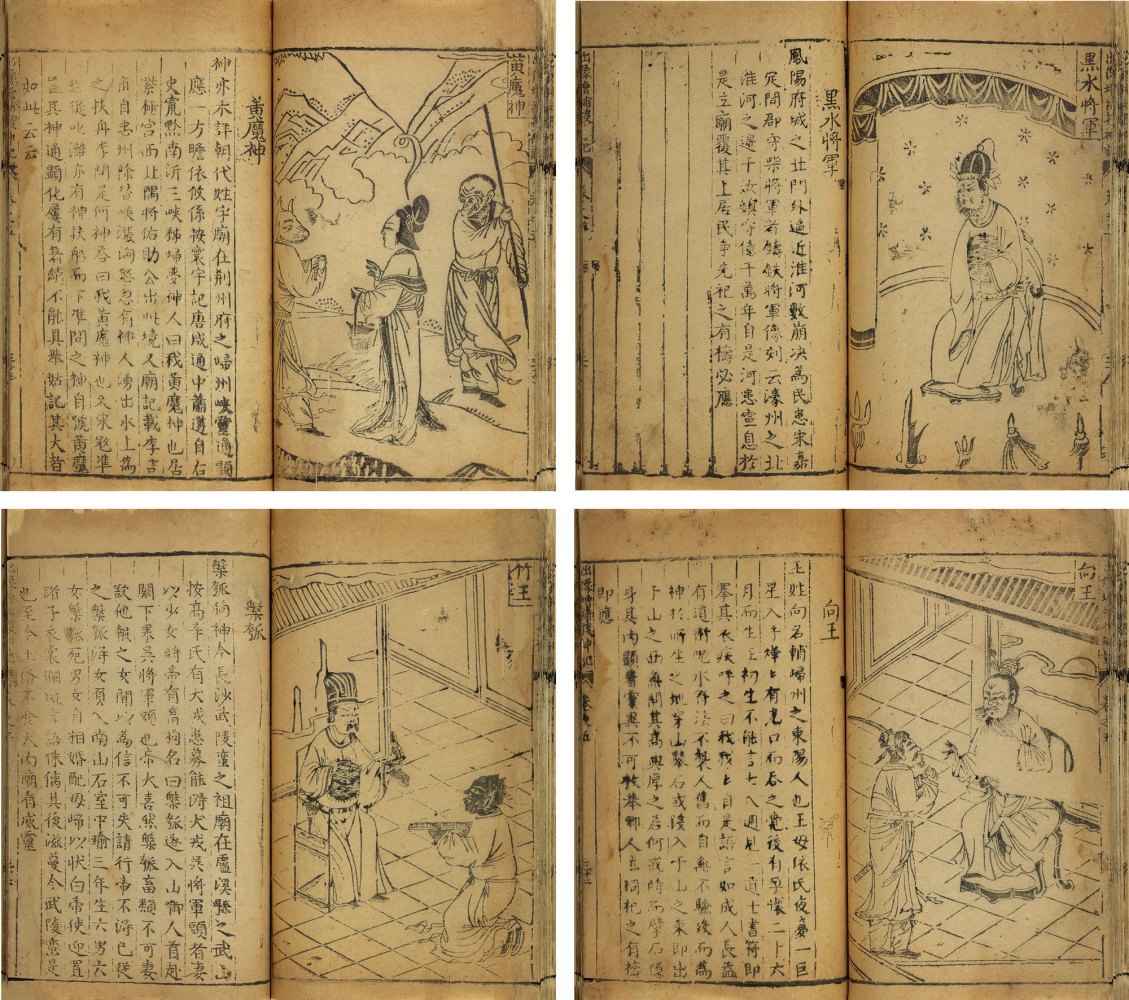 黃魔神
黃魔神
神亦未詳朝代姓字廟在荆州府之歸州峽靈通顯
應一方瞻依攸係按寰宇記唐咸通中蕭遘自右
史竄黔南泝三峽秭歸夢神人曰我黃魔神也居
紫極宮西北隅將佑助公出此境又廟記載李吉
甫自忠州除替峽漲洶怒忽有神人湧出水上為
之扶舟李問是何神答曰我黃魔神也又宋寇準
經從叱灘亦有神扶舟而下準問之神自號黃魔
益其神通顯化屢有著績不能具舉姑記其大者
如此云云
黑水將軍
黑水將軍
鳳陽府城之北門外逼近淮河數崩決為民患宋嘉
定間郡守柴將軍者鑄鉄將軍像刻云濠州之北
淮河之邊千次頭守億千萬年自是河患寧息於
是立廟覆其上居民爭先祀之有禱必應
竹王
槃瓠
槃瓠狗神今長沙武陵蠻之祖廟在盧溪縣之武山
按高辛氏有犬戎患募能得犬戎吳將軍頭者妻
以少女時帝有畜狗名曰槃瓠遂入山啣人首赴
闕下果吳將軍頭也帝大喜然槃瓠畜類不可妻
欲他報之女聞以為信不可失請行帝不得已從
之槃瓠得女負入南山石室中踰三年生六男六
女槃瓠死男女自相婚配母歸以狀白帝使迎置
諸子衣裳斕斑言語侏儺其後滋蔓今武陵蠻是
也至今土俗不食犬肉廟有威靈
向王
向王
王姓向名輔歸州之東陽人也王母依氏夜夢一巨
星入手燁上有光口而吞之覺後有孕懷二十六
月而生王初生不能言七八週見一道士書符即
牽其衣疾呼之曰我我上自是語言如成人長益
有道術咒水符法不契人舊而自無不驗後而為
神於所生之地穿山鑿石或沒入于山之東即出
于山之西每問其高與厚之若何或時而擘石隱
身其內顯著靈異不可枚舉鄉人立祠祀之有禱
即應